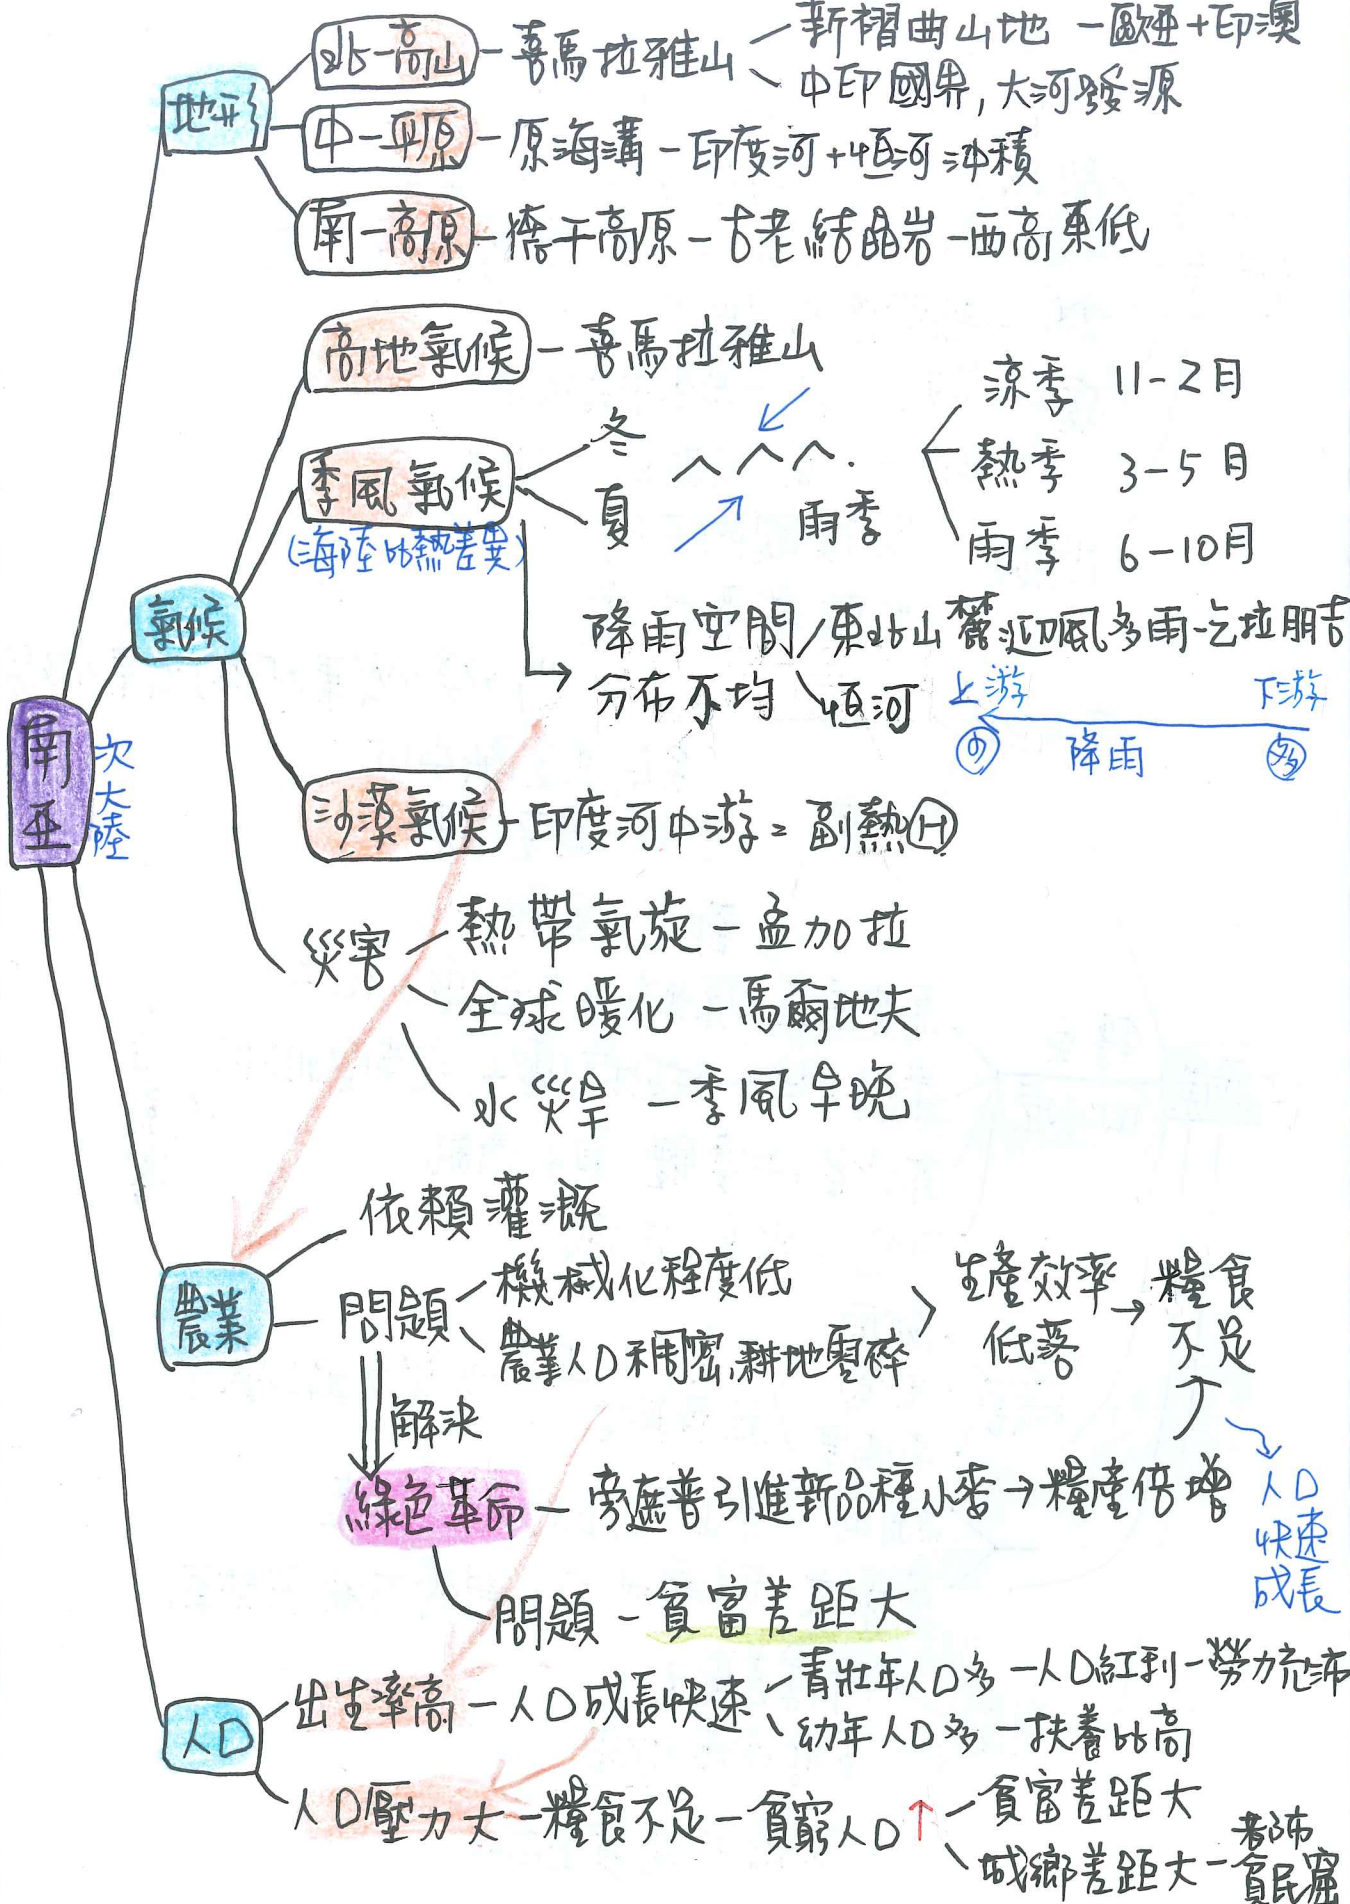 南亞
次大陸
地形
北－高山－喜馬拉雅山
新褶曲山地－歐亞＋印澳
中印國界,大河發源
中－平原－原海溝－印度河＋恆河沖積
南－高原－德干高原－古老結晶岩－西高東低
氣候
高地氣候－喜馬拉雅山
季風氣候
(海陸比熱差異)
冬
夏
雨季
涼季 11-2月
熱季 3-5月
雨季 6-10月
降雨空間
分布不均
東北山麓迎風多雨-乞拉朋吉
恆河
上游 下游
少 降雨 多
沙漠氣候－印度河中游=副熱H
災害
熱帶氣旋－孟加拉
全球暖化－馬爾地夫
水災旱－季風早晚
農業
依賴灌溉
問題
機械化程度低
農業人口稠密,耕地零碎
生產效率
低落
→
糧食
不足
解決
綠色革命－旁遮普引進新品種小麥→糧產倍增
人口
快速
成長
問題－貧富差距大
人口
出生率高－人口成長快速
青壯年人口多－人口紅利－勞力充沛
幼年人口多－扶養比高
人口壓力大－糧食不足－貧窮人口↑
貧富差距大
城鄉差距大－都市
貧民窟